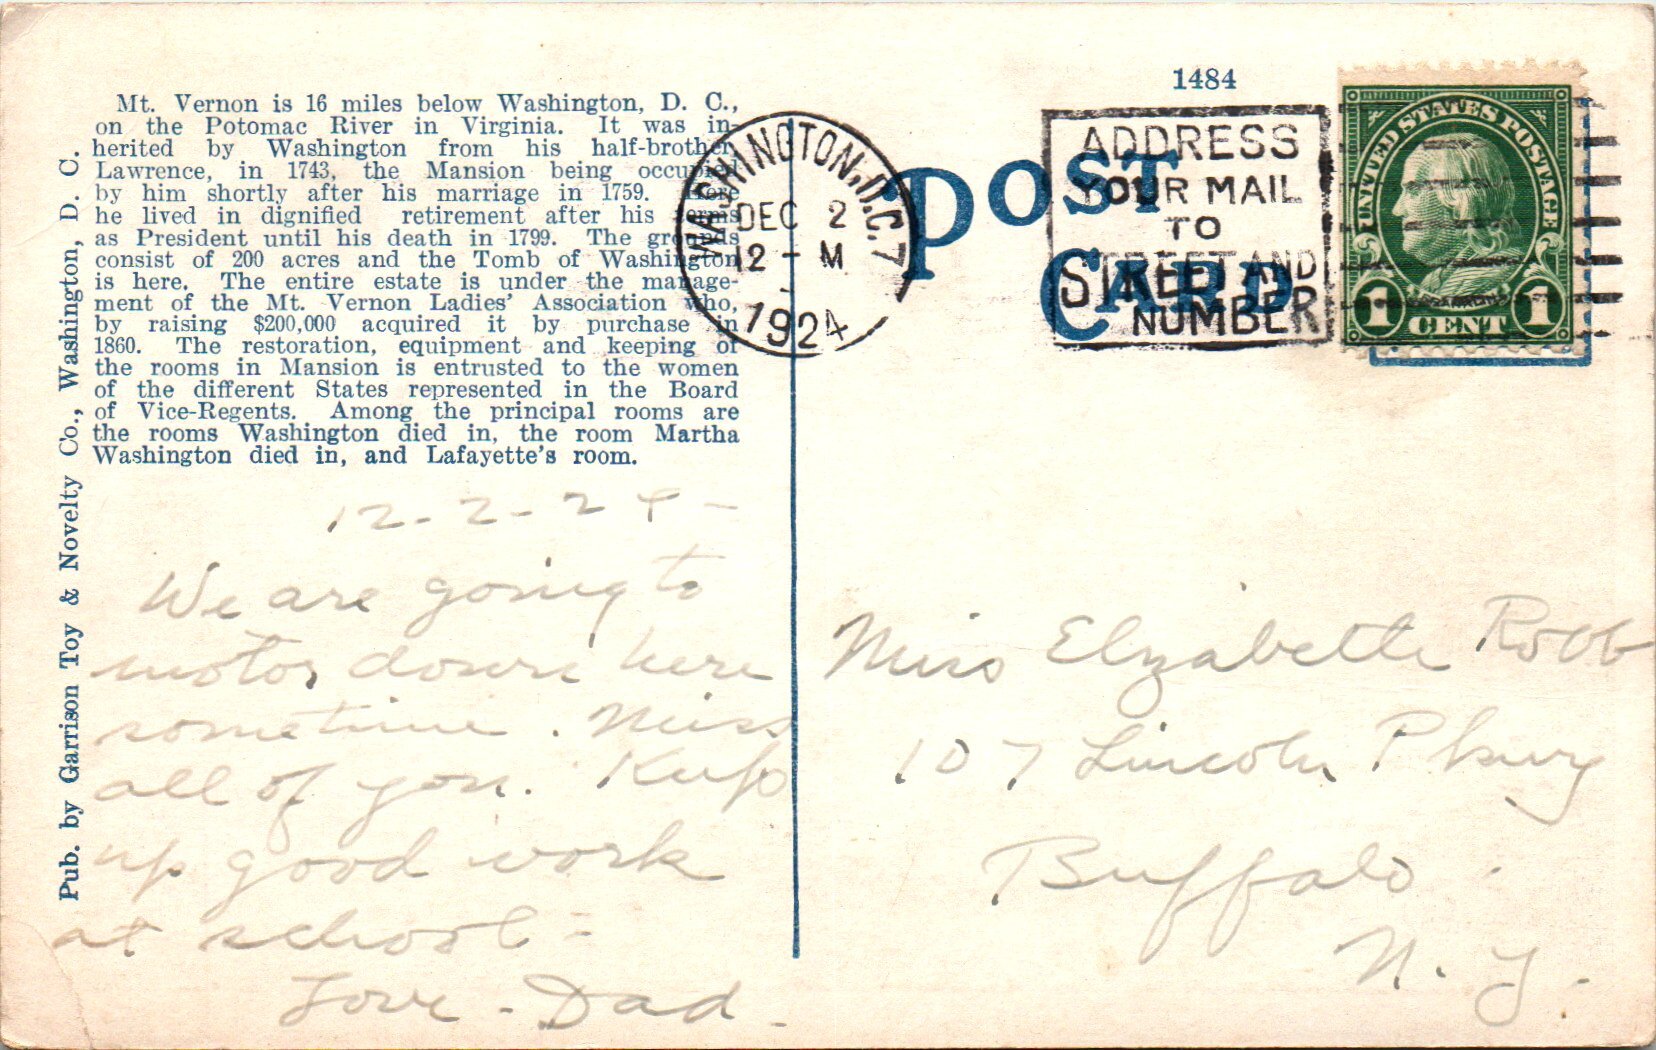 Mt. Vernon is 16 miles below Washington, D. C.,
on the Potomac River in Virginia. It was in-
herited by Washington from his half-brother
Lawrence, in 1743, the Mansion being occupied
by him shortly after his marriage in 1759. Here
he lived in dignified retirement after his terms
as President until his death in 1799. The grounds
consist of 200 acres and the Tomb of Washington
is here. The entire estate is under the manage-
ment of the Mt. Vernon Ladies' Association who,
by raising $200,000 acquired it by purchase in
1860. The restoration, equipment and keeping of
the rooms in Mansion is entrusted to the women
of the different States represented in the Board
of Vice-Regents. Among the principal rooms are
the rooms Washington died in, the room Martha
Washington died in, and Lafayette's room.
Pub. by Garrison Toy & Novelty Co., Washington, D. C.
12-2-24-
We are going to
motor down here
sometime. Miss
all of you. Keep
up good work
at school -
Love - Dad.
WASHINGTON, D.C. 7
DEC 2
12 - M
1924
1484
POST
CARD
ADDRESS
YOUR MAIL
TO
STREET AND
NUMBER
UNITED STATES POSTAGE
FRANKLIN
1 CENT 1
Miss Elizabeth Robb
107 Lincoln Pkwy
Buffalo.
N. Y.